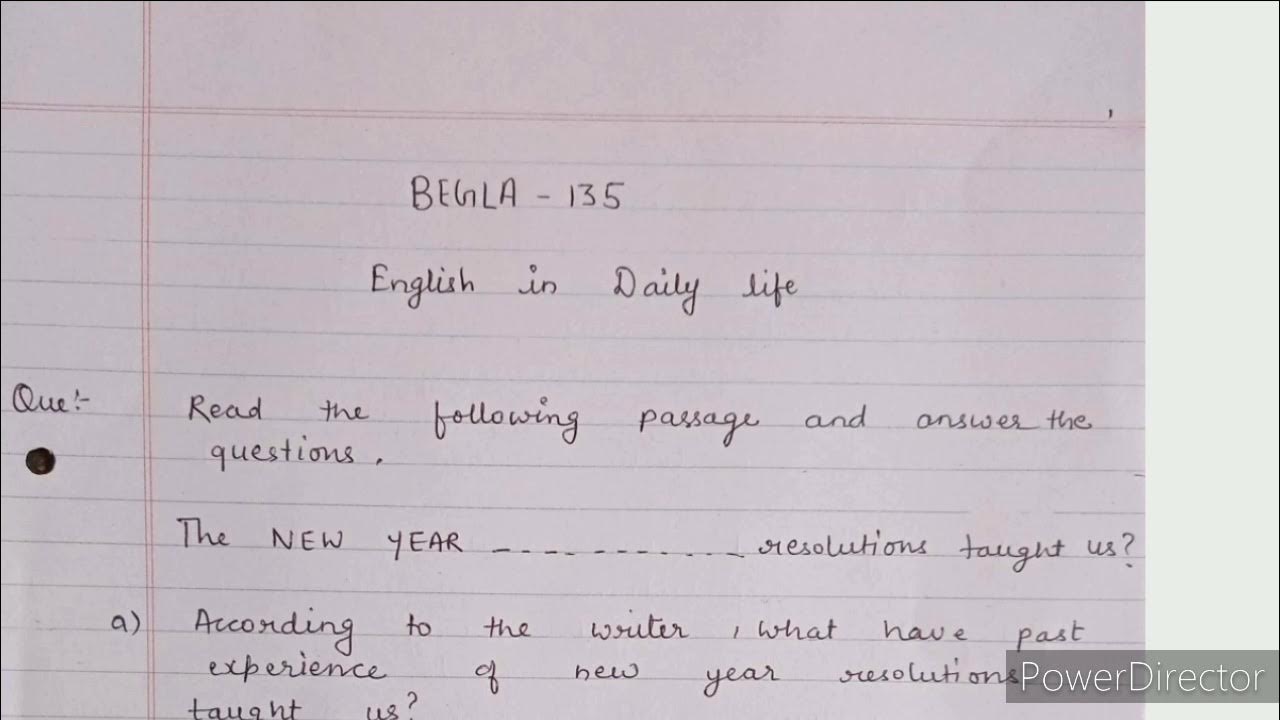 BEGLA - 135
English in Daily life
Que:- Read the following passage and answer the
questions.
The NEW YEAR ------------ resolutions taught us?
a) According to the writer, what have past
experience of new year resolutions
taught us?
PowerDirector